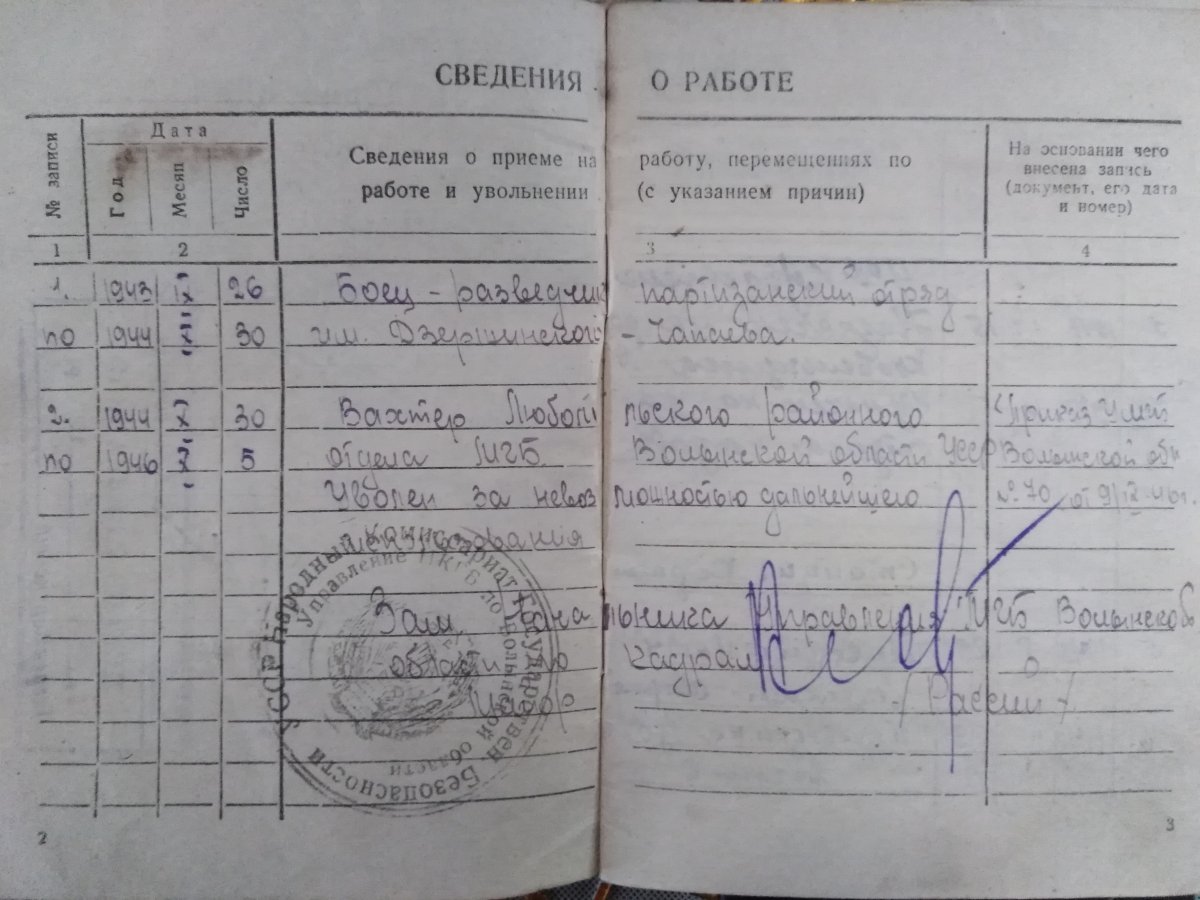 СВЕДЕНИЯ О РАБОТЕ
№ записи
Дата
Год
Месяц
Число
Сведения о приеме на работу, перемещениях по
работе и увольнении (с указанием причин)
На основании чего
внесена запись
(документ, его дата
и номер)
1 2 3 4
1. 1943 IX 26 Боец-разведчик партизанский отряд
по 1944 30 им. Дзержинского - Чапаева.
2. 1944 X 30 Вахтер Любомльского районного Приказ УМГБ
по 1946 X 5 отдела МГБ Волынской области УССР Волынской обл
Уволен за невозможностью дальнейшего № 70 от 9/12
использования
Зам. Начальника Управления МГБ Волынской
области по кадрам
Майор /Рассий/
УССР Народный Комиссариат Государствен. Безопасности
Управление НКГБ по Волынской области
2
3